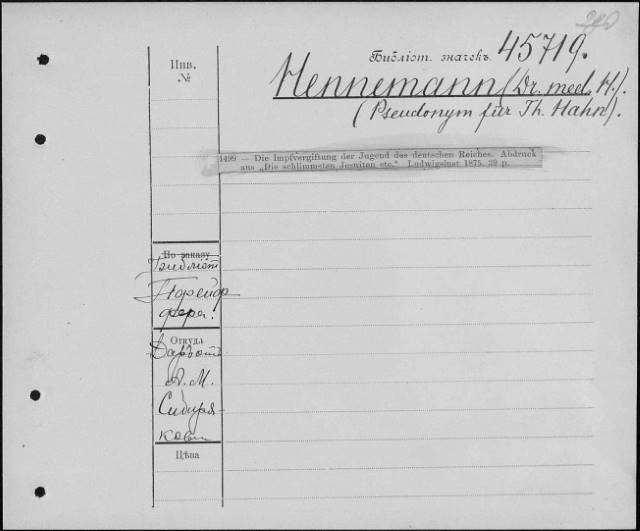 Библіот. значекъ 45719.
Инв.
№
Hennemann (Dr. med. H.)
(Pseudonym für Th. Hahn).
1499 — Die Impfvergiftung der Jugend des deutschen Reiches. Abdruck
aus „Die schlimmsten Jesuiten etc.“ Ludwigslust 1875. 39 p.
По заказу
Откуда
А. М.
Сибиря-
ковъ
Цѣна